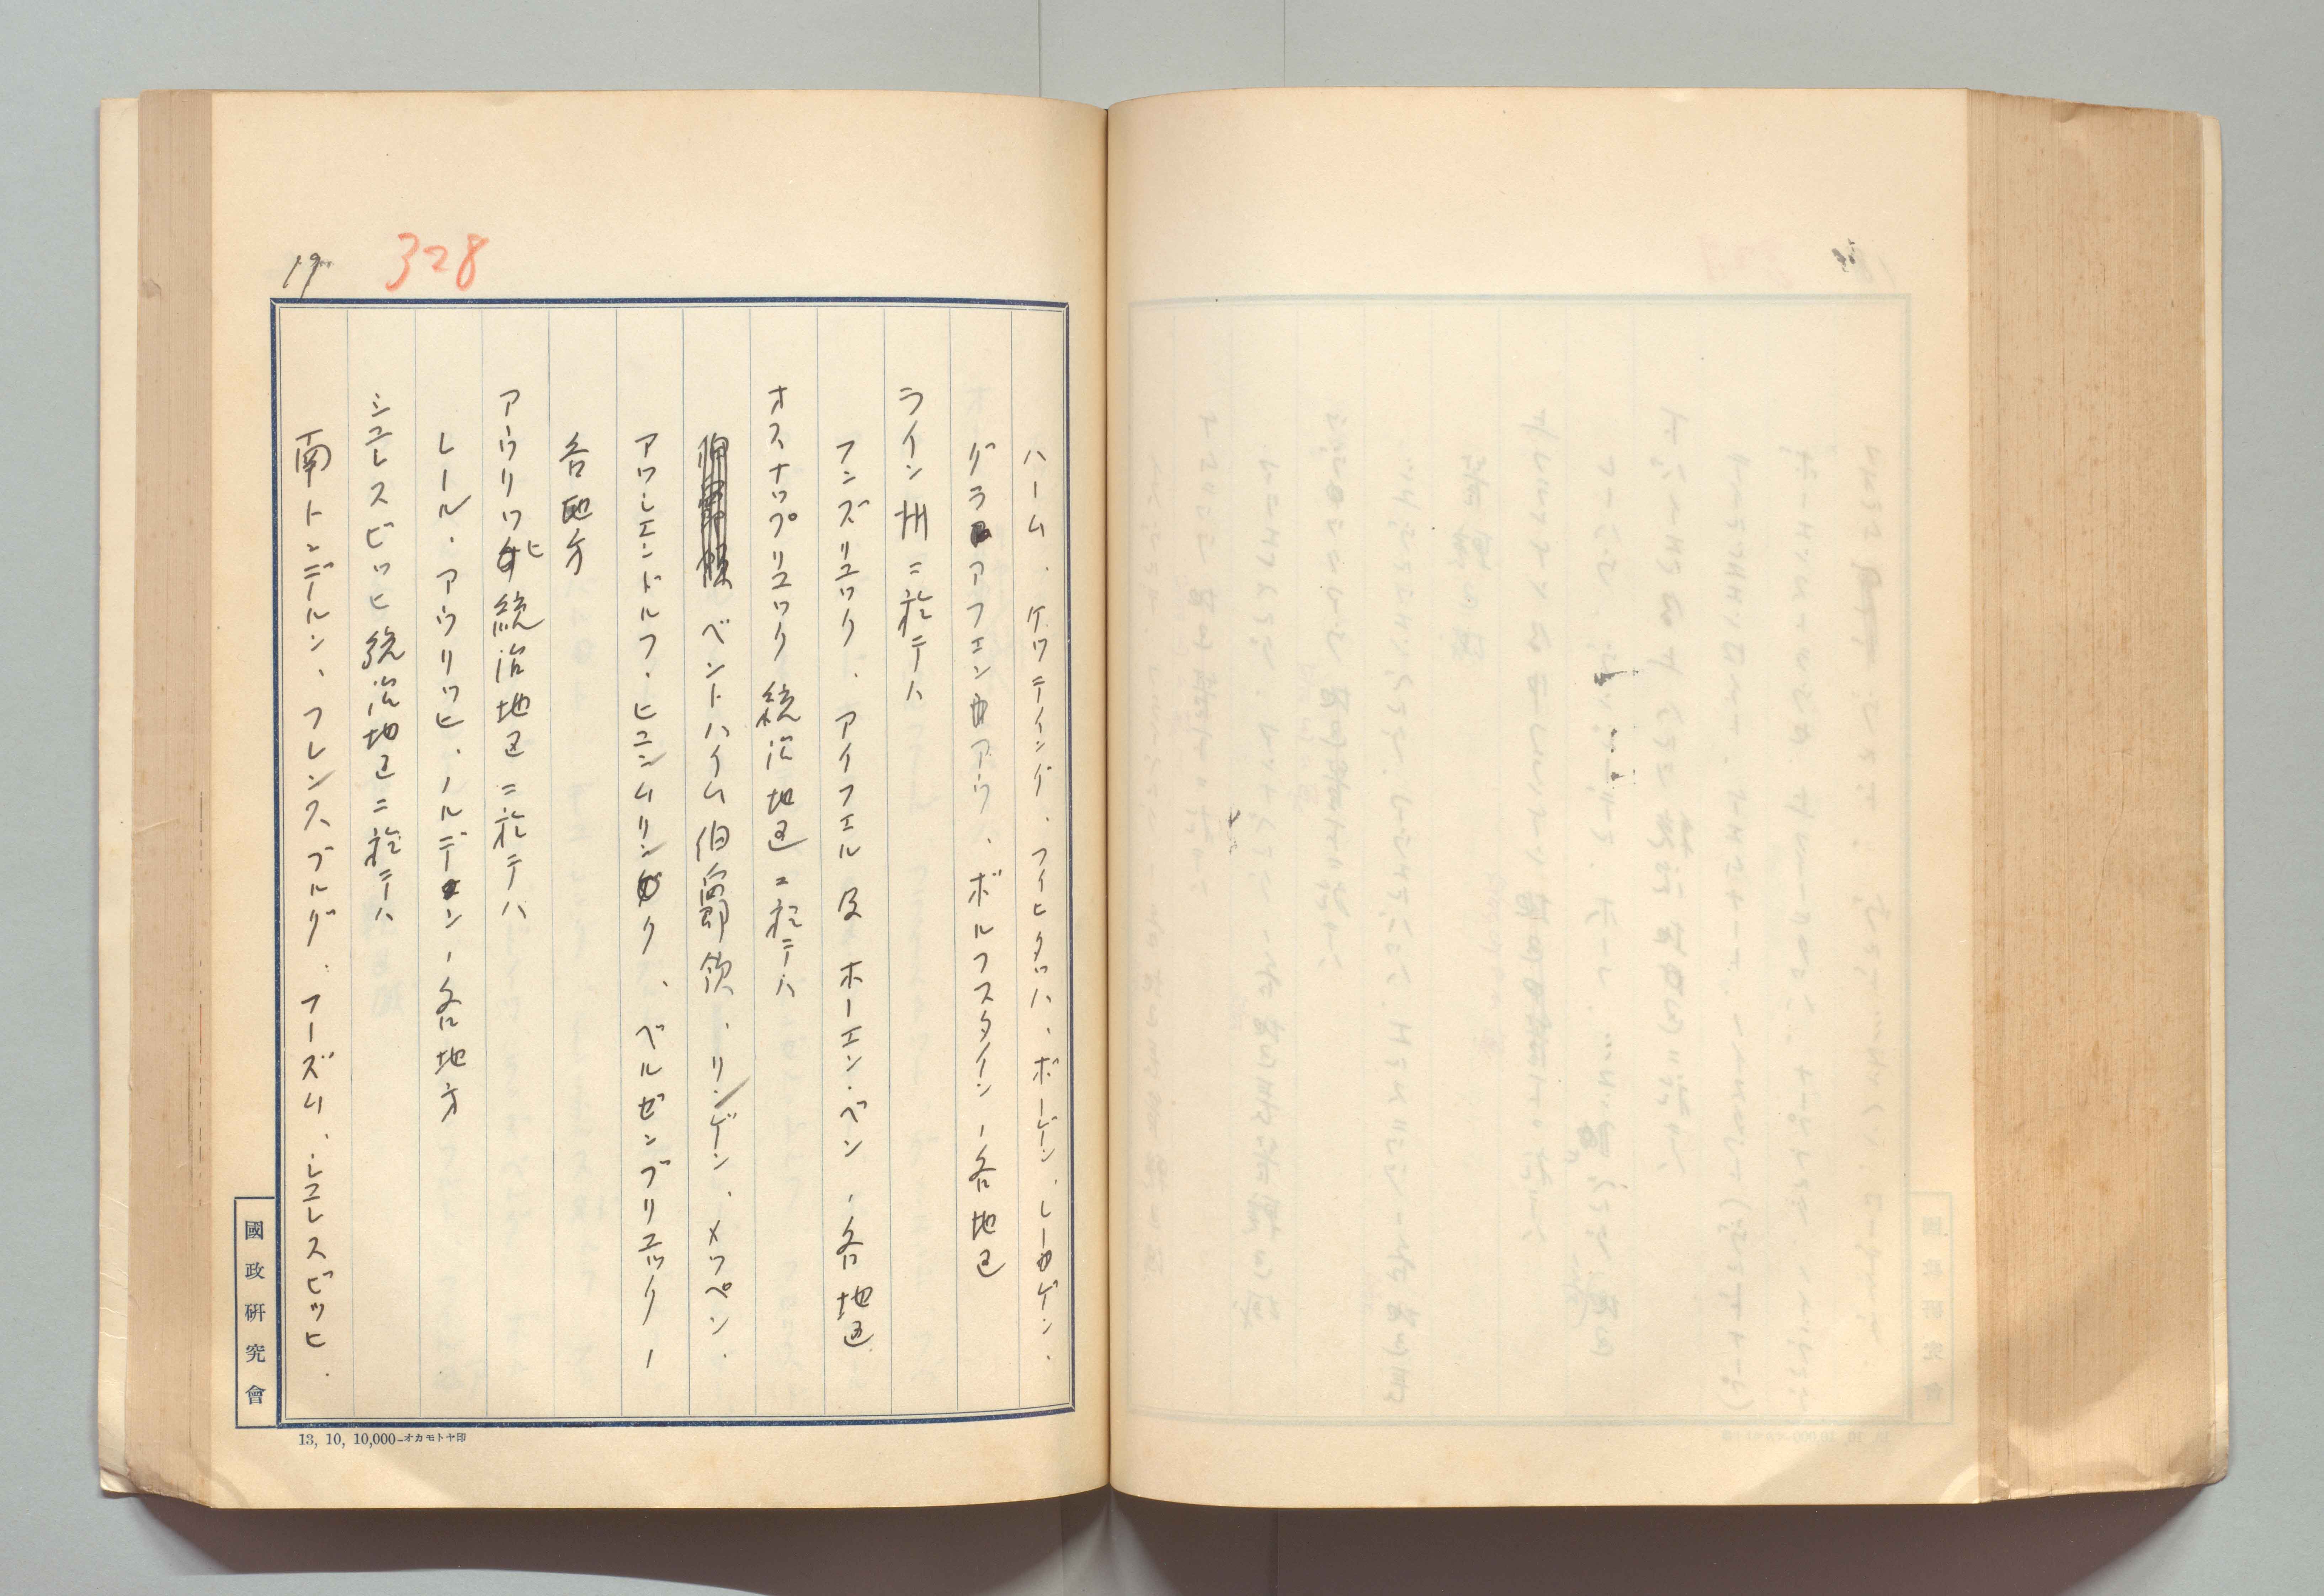 19
328
ハーム、ケツテイング、フイヒタツハ、ボーゲン、レーゲン、
グラフエンアウ、ボルフスタイン ー各地区
ライン州ニ於テハ
フンズリユツク、アイフエル及ホーエン・ベン ー各地区
オスナプリユツク統治地区ニ於テハ
ベントハイム伯爵領、リンゲン、メツペン、
アツシエンドルフ、ヒユンムリンク、ベルゼンブリユツク ー
各地方
アウリツヒ統治地区ニ於テハ
レール、アウリツヒ、ノルデン ー各地方
シユレスビツヒ統治地区ニ於テハ
南トンデルン、フレンスブルグ、フーズム、シユレスビツヒ、
國政研究會
13, 10, 10,000-オカモトヤ印